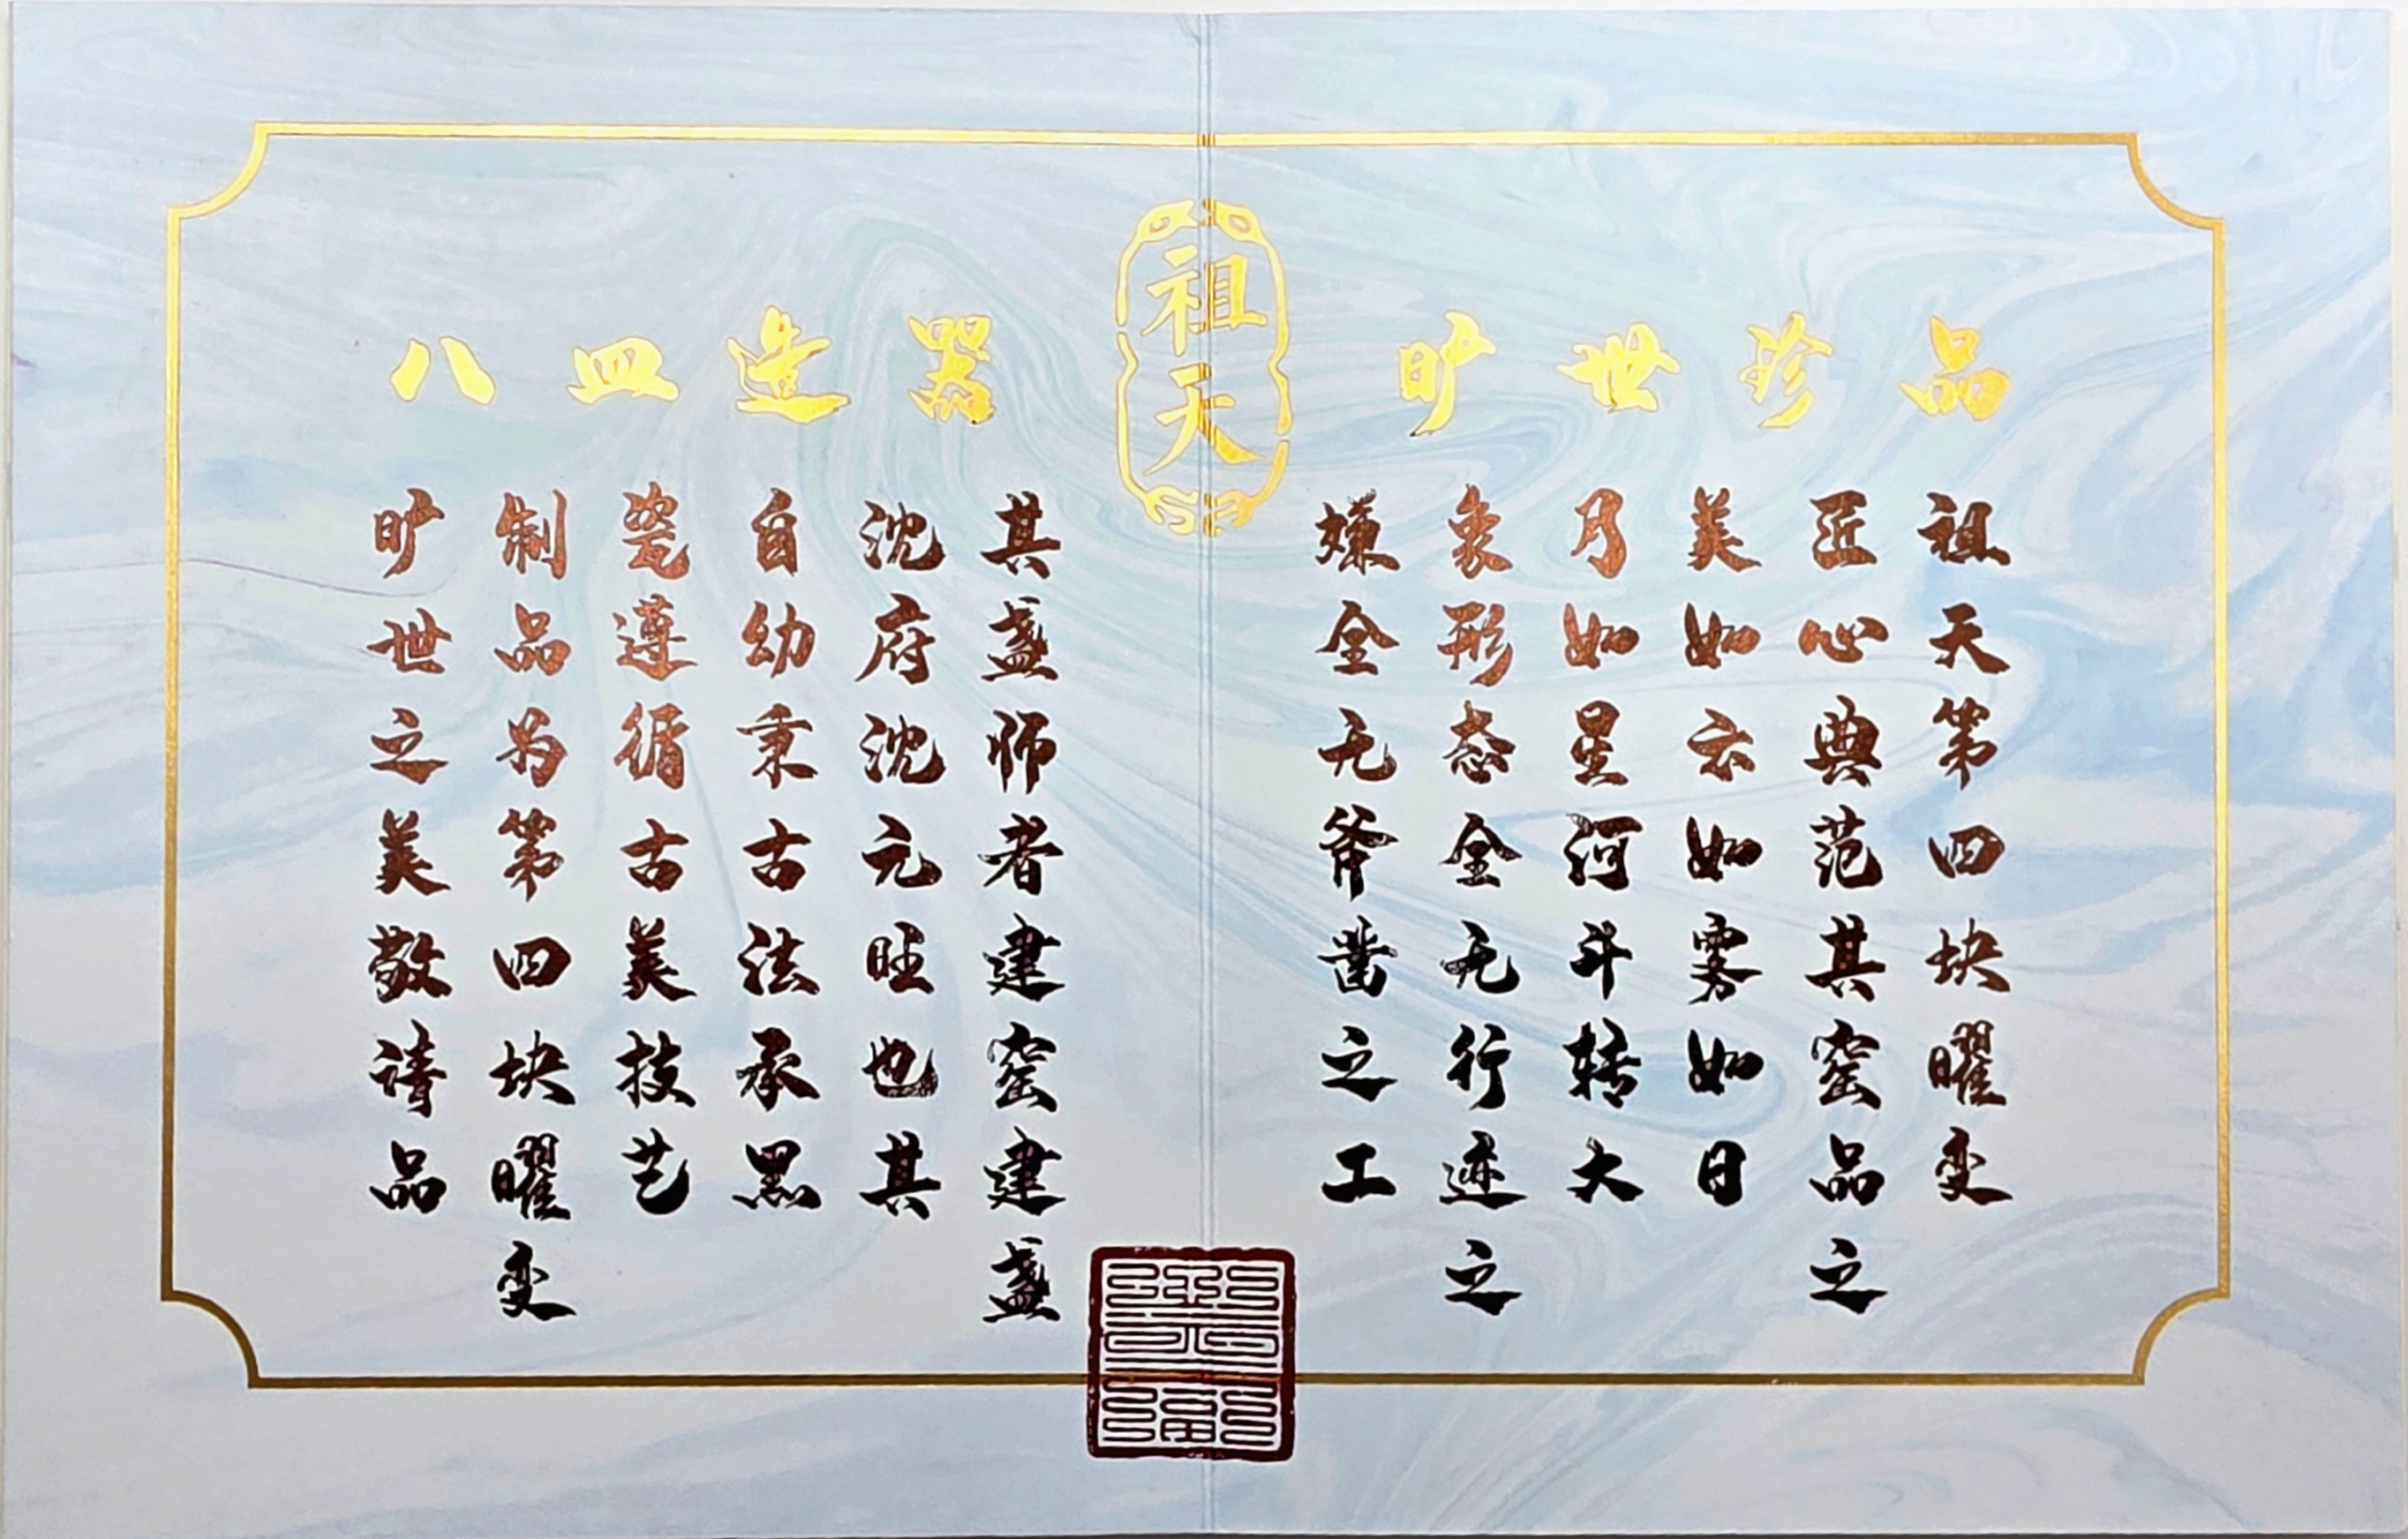 八皿造器
祖天
旷世珍品
祖天第四块曜变
匠心典范其窑品之
美如云如雾如日
乃如星河斗转大
象形态全无行迹之
嫌全无斧凿之工
其盏师者建窑建盏
沈府沈元旺也其
自幼秉古法承黑
瓷遵循古美技艺
制品为第四块曜变
旷世之美敬请品